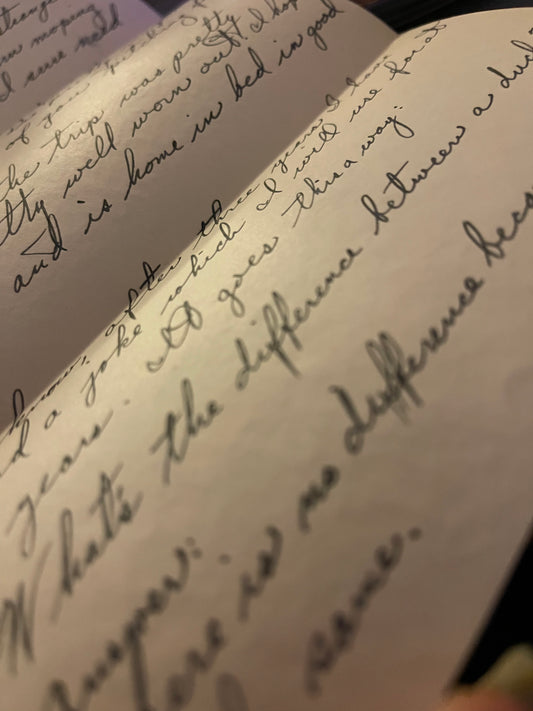 am moping
I sure need
of you
the trip was pretty
well worn out I hope
and is home in bed in good
know, after three years I have
a joke which I will use for
years. It goes this a way:
What's the difference between a duck
Answer:
There is no difference because
same.